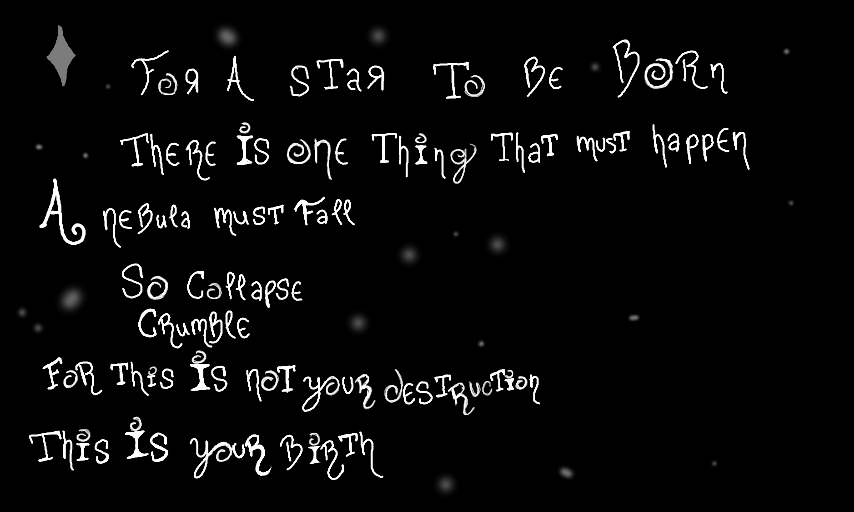 For A star To Be Born
There is one Thing That must happen
A nebula must Fall
So Collapse
Crumble
For This is not your destruction
This is your Birth